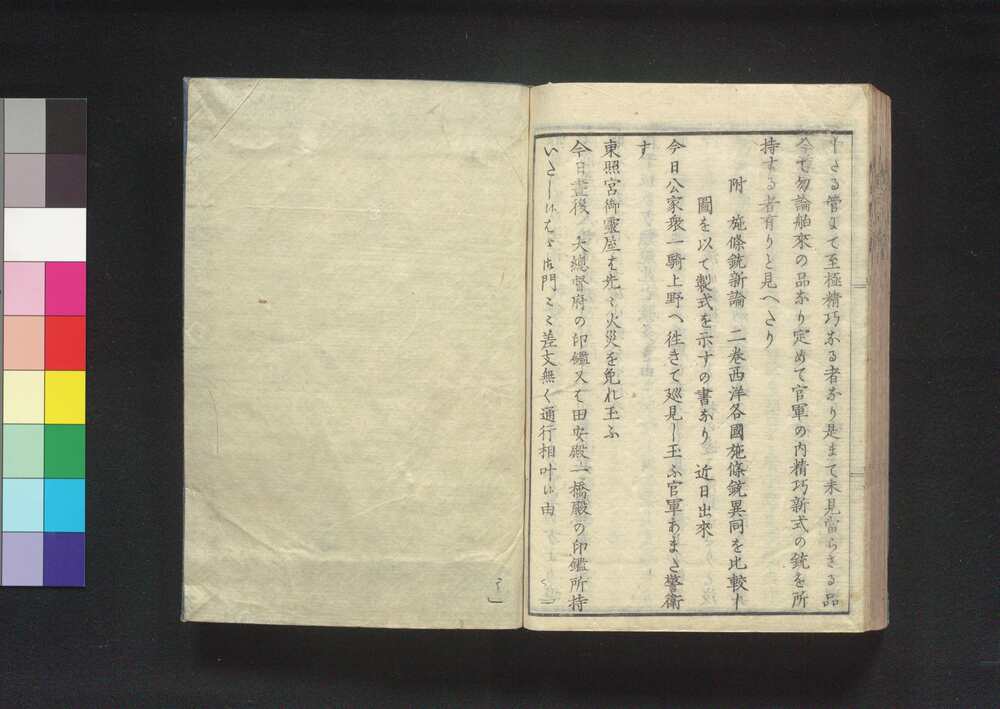 しさる管まて至極精巧なる者なり是まて未見當らさる品
今て勿論舶來の品なり定めて官軍の内精巧新式の銃を所
持する者有りと見へたり
附 施條銃新論 二巻西洋各國施條銃異同を比較し
圖を以て製式を示すの書なり 近日出來
今日公家衆一騎上野へ往きて廵見し玉ふ官軍あまた警衛
す
東照宮御靈屋は先々火災を免れ玉ふ
今日晝後 大總督府の印鑑又は田安殿一橋殿の印鑑所持
いたし候はゝ御門々々差支無く通行相叶候由